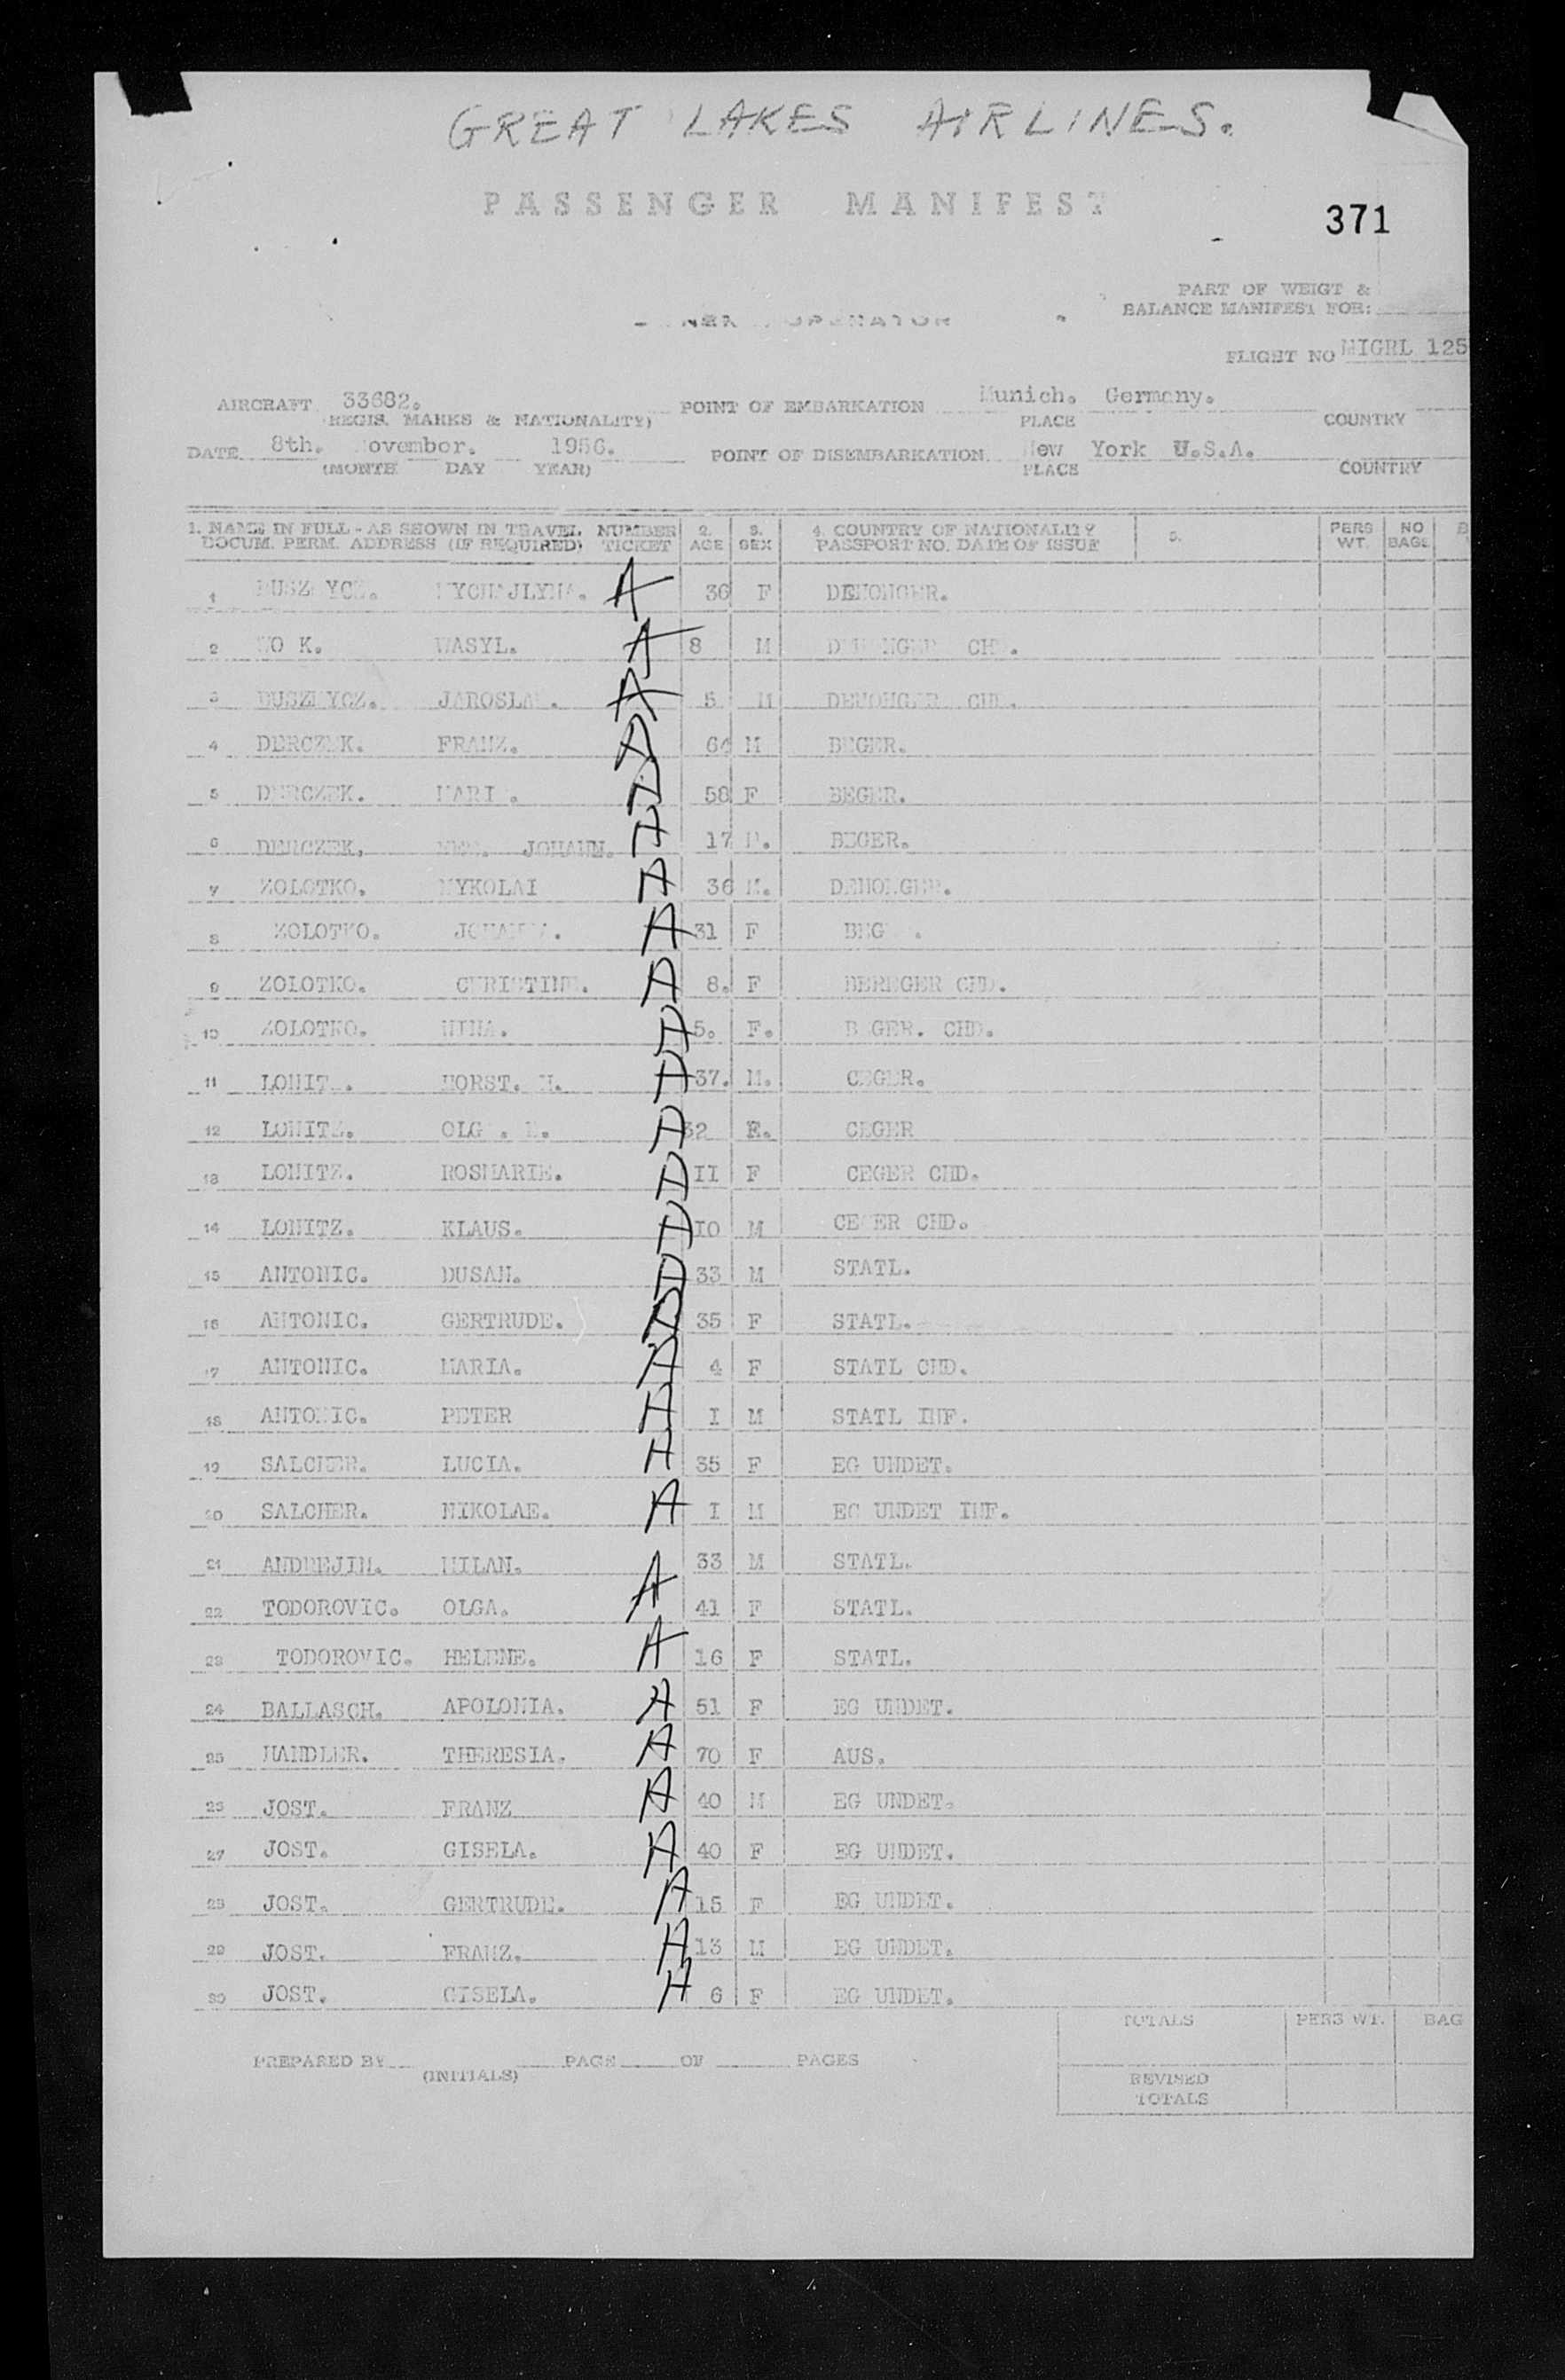 GREAT LAKES AIRLINES.
PASSENGER MANIFEST
371
PART OF WEIGT &
BALANCE MANIFEST FOR:
OPERATOR
FLIGHT NO MIGRL 125
AIRCRAFT 33682. POINT OF EMBARKATION Munich. Germany.
(REGIS. MARKS & NATIONALITY) PLACE COUNTRY
DATE 8th. ovember. 1956. POINT OF DISEMBARKATION New York U.S.A.
(MONTH DAY YEAR) PLACE COUNTRY
1. NAME IN FULL - AS SHOWN IN TRAVEL NUMBER 2. 3. 4. COUNTRY OF NATIONALITY 5. PERS NO B
DOCUM. PERM. ADDRESS (IF REQUIRED) TICKET AGE SEX PASSPORT NO. DATE OF ISSUE WT. BAGE
1 A 36 F DENONGER.
2 WASYL. A 8 M CHD.
3 A 5 M DENONGER CHD.
4 DERCZEK. FRANZ. D 64 M BEGER.
5 DERCZEK. D 58 F BEGER.
6 DERCZEK, JOHANN. 17 M. BEGER.
7 ZOLOTKO. MYKOLAI A 36 M. DENONGER.
8 ZOLOTKO. A 31 F
9 ZOLOTKO. CHRISTINE. D 8. F BEREGER CHD.
10 ZOLOTKO. NINA. D 5. F. B GER. CHD.
11 LONIT . HORST. D 37. M. CEGER.
12 LONITZ. D 32 F. CEGER
13 LONITZ. ROSMARIE. D II F CEGER CHD.
14 LONITZ. KLAUS. D IO M CEGER CHD.
15 ANTONIC. DUSAN. D 33 M STATL.
16 ANTONIC. GERTRUDE. D 35 F STATL.
17 ANTONIC. MARIA. D 4 F STATL CHD.
18 ANTONIC. PETER D I M STATL INF.
19 SALCHER. LUCIA. 35 F EG UNDET.
20 SALCHER. NIKOLAE. A I M EG UNDET INF.
21 ANDREJIN. MILAN. 33 M STATL.
22 TODOROVIC. OLGA. A 41 F STATL.
23 TODOROVIC. HELENE. A 16 F STATL.
24 BALLASCH. APOLONIA. A 51 F EG UNDET.
25 HANDLER. THERESIA. A 70 F AUS.
26 JOST. FRANZ A 40 M EG UNDET.
27 JOST. GISELA. A 40 F EG UNDET.
28 JOST. GERTRUDE. A 15 F EG UNDET.
29 JOST. FRANZ. A 13 M EG UNDET.
30 JOST. GISELA. A 6 F EG UNDET.
TOTALS PERS WT. BAG
PREPARED BY PAGE OF PAGES
(INITIALS)
REVISED
TOTALS